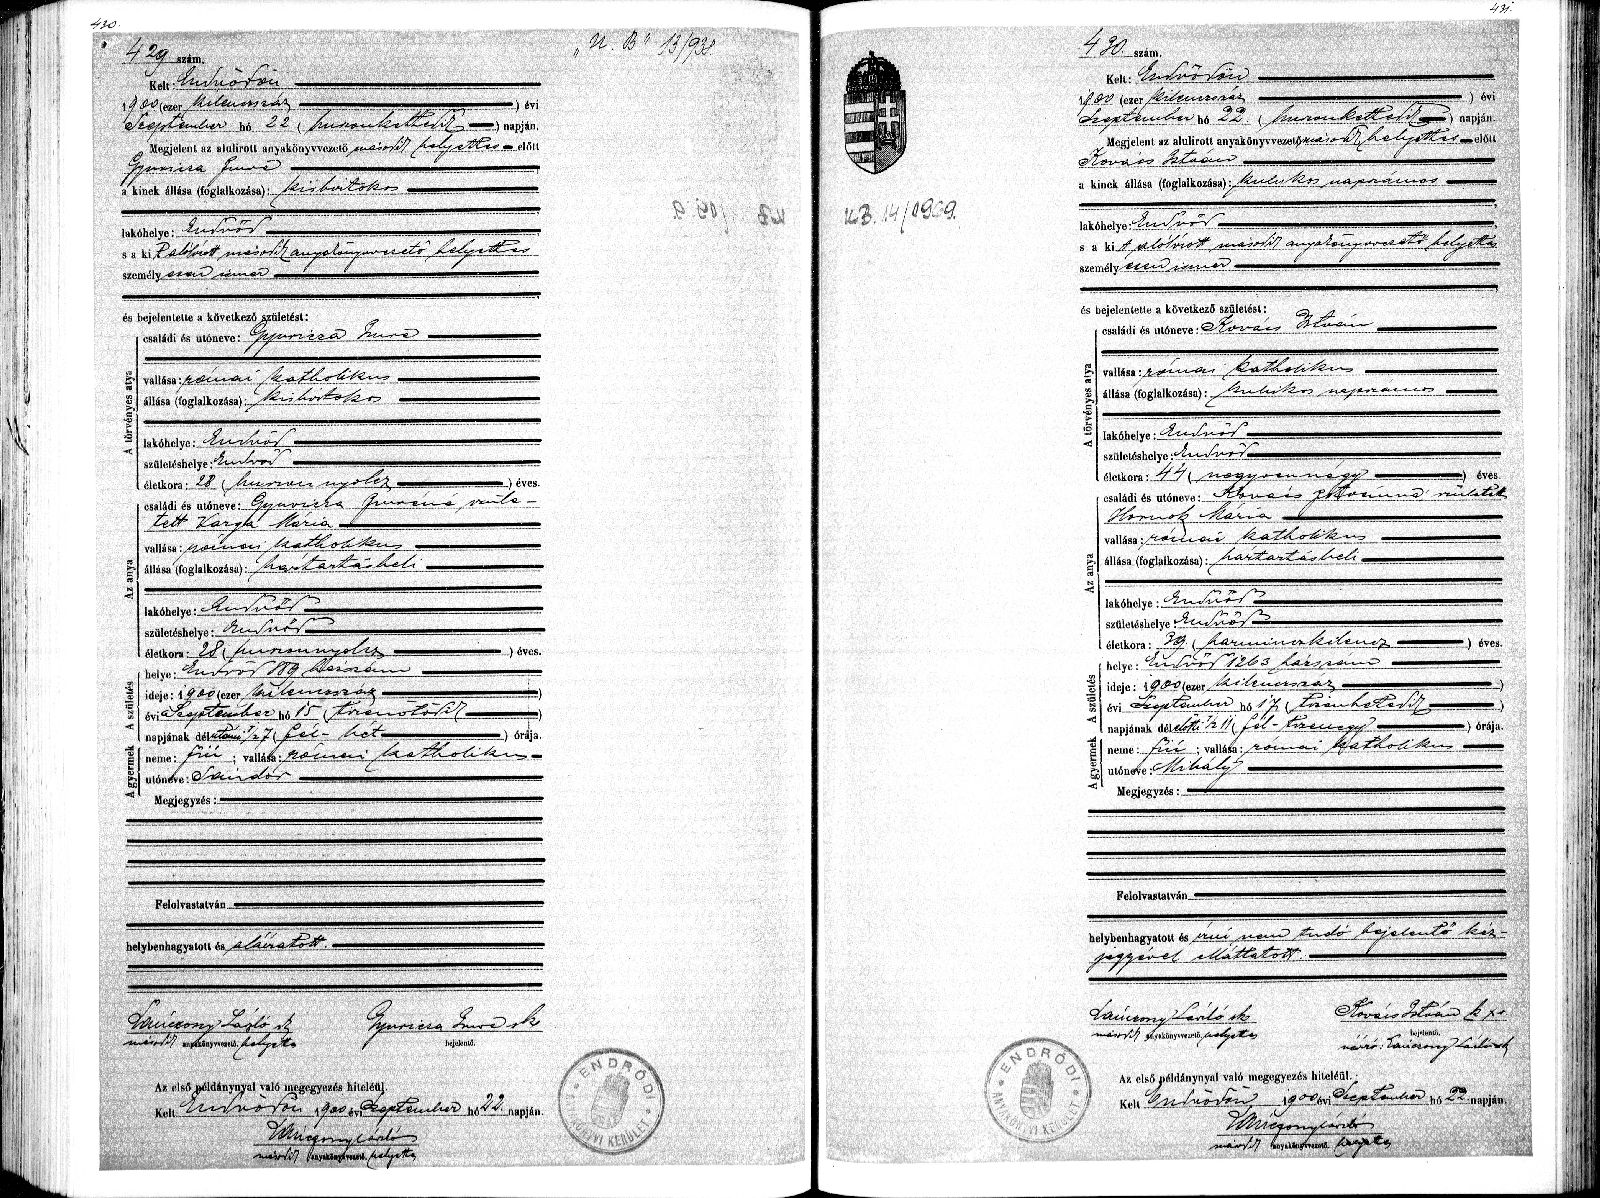 430.
429 szám.
„U. B" 13/938.
Kelt: Endrődön
1900 (ezer kilencszáz ) évi
Szeptember hó 22 ( huszonkettedik ) napján.
Megjelent az alulirott anyakönyvvezető másodk helyettes előtt
Gyuricza Imre
a kinek állása (foglalkozása): kisbirtokos
lakóhelye: Endrőd
s a ki alólirott másodk anyakönyvvezető helyettes
személyesen ismer
és bejelentette a következő születést:
A törvényes atya
családi és utóneve: Gyuricza Imre
vallása: római katholikus
állása (foglalkozása): kisbirtokos
lakóhelye: Endrőd
születéshelye: Endrőd
életkora: 28 ( huszonnyolcz ) éves.
Az anya
családi és utóneve: Gyuricza Imréné szüle-
tett Varga Mária
vallása: római katholikus
állása (foglalkozása): háztartásbeli
lakóhelye: Endrőd
születéshelye: Endrőd
életkora: 28 ( huszonnyolcz ) éves.
A születés
helye: Endrőd 189 házszám
ideje: 1900 (ezer kilencszáz )
évi Szeptember hó 15 ( tizenötödik )
napjának délutáni 1/27 ( fél-hét ) órája.
A gyermek
neme: fiú ; vallása: római katholikus
utóneve: Sándor
Megjegyzés:
Felolvastatván
helybenhagyatott és aláiratott.
Lanczony László sk
Gyuricza Imre sk
másodk anyakönyvvezető, helyettes
bejelentő.
Az első példánynyal való megegyezés hiteléül.
Kelt Endrődön 1900 évi Szeptember hó 22 napján.
Lánczony László
másodk anyakönyvvezető, helyettes
ENDRŐDI
ANYAKÖNYVI KERÜLET
431.
430. szám.
Kelt: Endrődön
1900 (ezer kilencszáz ) évi
Szeptember hó 22. ( huszonkettedik ) napján.
Megjelent az alulirott anyakönyvvezető másodk helyettes előtt
Kovács István
a kinek állása (foglalkozása): kubikos napszámos
U.B. 14/1939.
lakóhelye: Endrőd
s a kit alólirott másodk anyakönyvvezető helyettes
személyesen ismer
és bejelentette a következő születést:
A törvényes atya
családi és utóneve: Kovács István
vallása: római katholikus
állása (foglalkozása): kubikos napszámos
lakóhelye: Endrőd
születéshelye: Endrőd
életkora: 44 ( negyvennégy ) éves.
Az anya
családi és utóneve: Kovács Istvánné született
Hornok Mária
vallása: római katholikus
állása (foglalkozása): háztartásbeli
lakóhelye: Endrőd
születéshelye: Endrőd
életkora: 39 ( harminczkilencz ) éves.
A születés
helye: Endrőd 1263 házszám
ideje: 1900 (ezer kilencszáz )
évi Szeptember hó 17 ( tizenhetedik )
napjának délelőtti 1/2 11 ( fél-tizenegy ) órája.
A gyermek
neme: fiú ; vallása: római katholikus
utóneve: Mihály
Megjegyzés:
Felolvastatván
helybenhagyatott és irni nem tudó bejelentő kéz-
jegyével elláttatott.
Lanczony László sk
Kovács István k x v
másodk anyakönyvvezető, helyettes
bejelentő.
névíró: Lanczony László sk
Az első példánynyal való megegyezés hiteléül.
Kelt Endrődön 1900 évi Szeptember hó 22 napján.
Lánczony László
másodk anyakönyvvezető, helyettes
ENDRŐDI
ANYAKÖNYVI KERÜLET